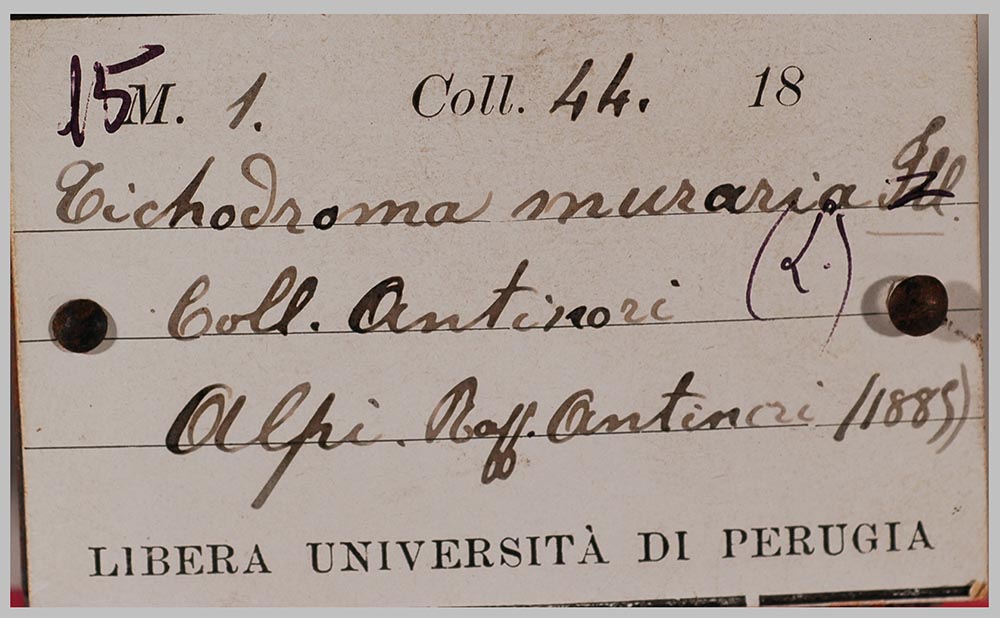 15 M. 1. Coll. 44. 18
Tichodroma muraria Ill.
(L.)
Coll. Antinori
Alpi. Raff. Antinori (1889)
LIBERA UNIVERSITÀ DI PERUGIA